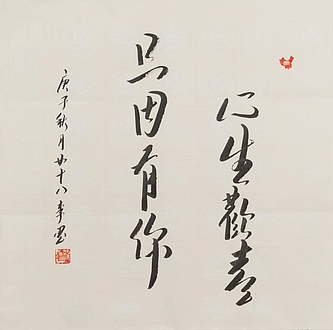 心生歡喜
只因有你
庚子秋月廿十八